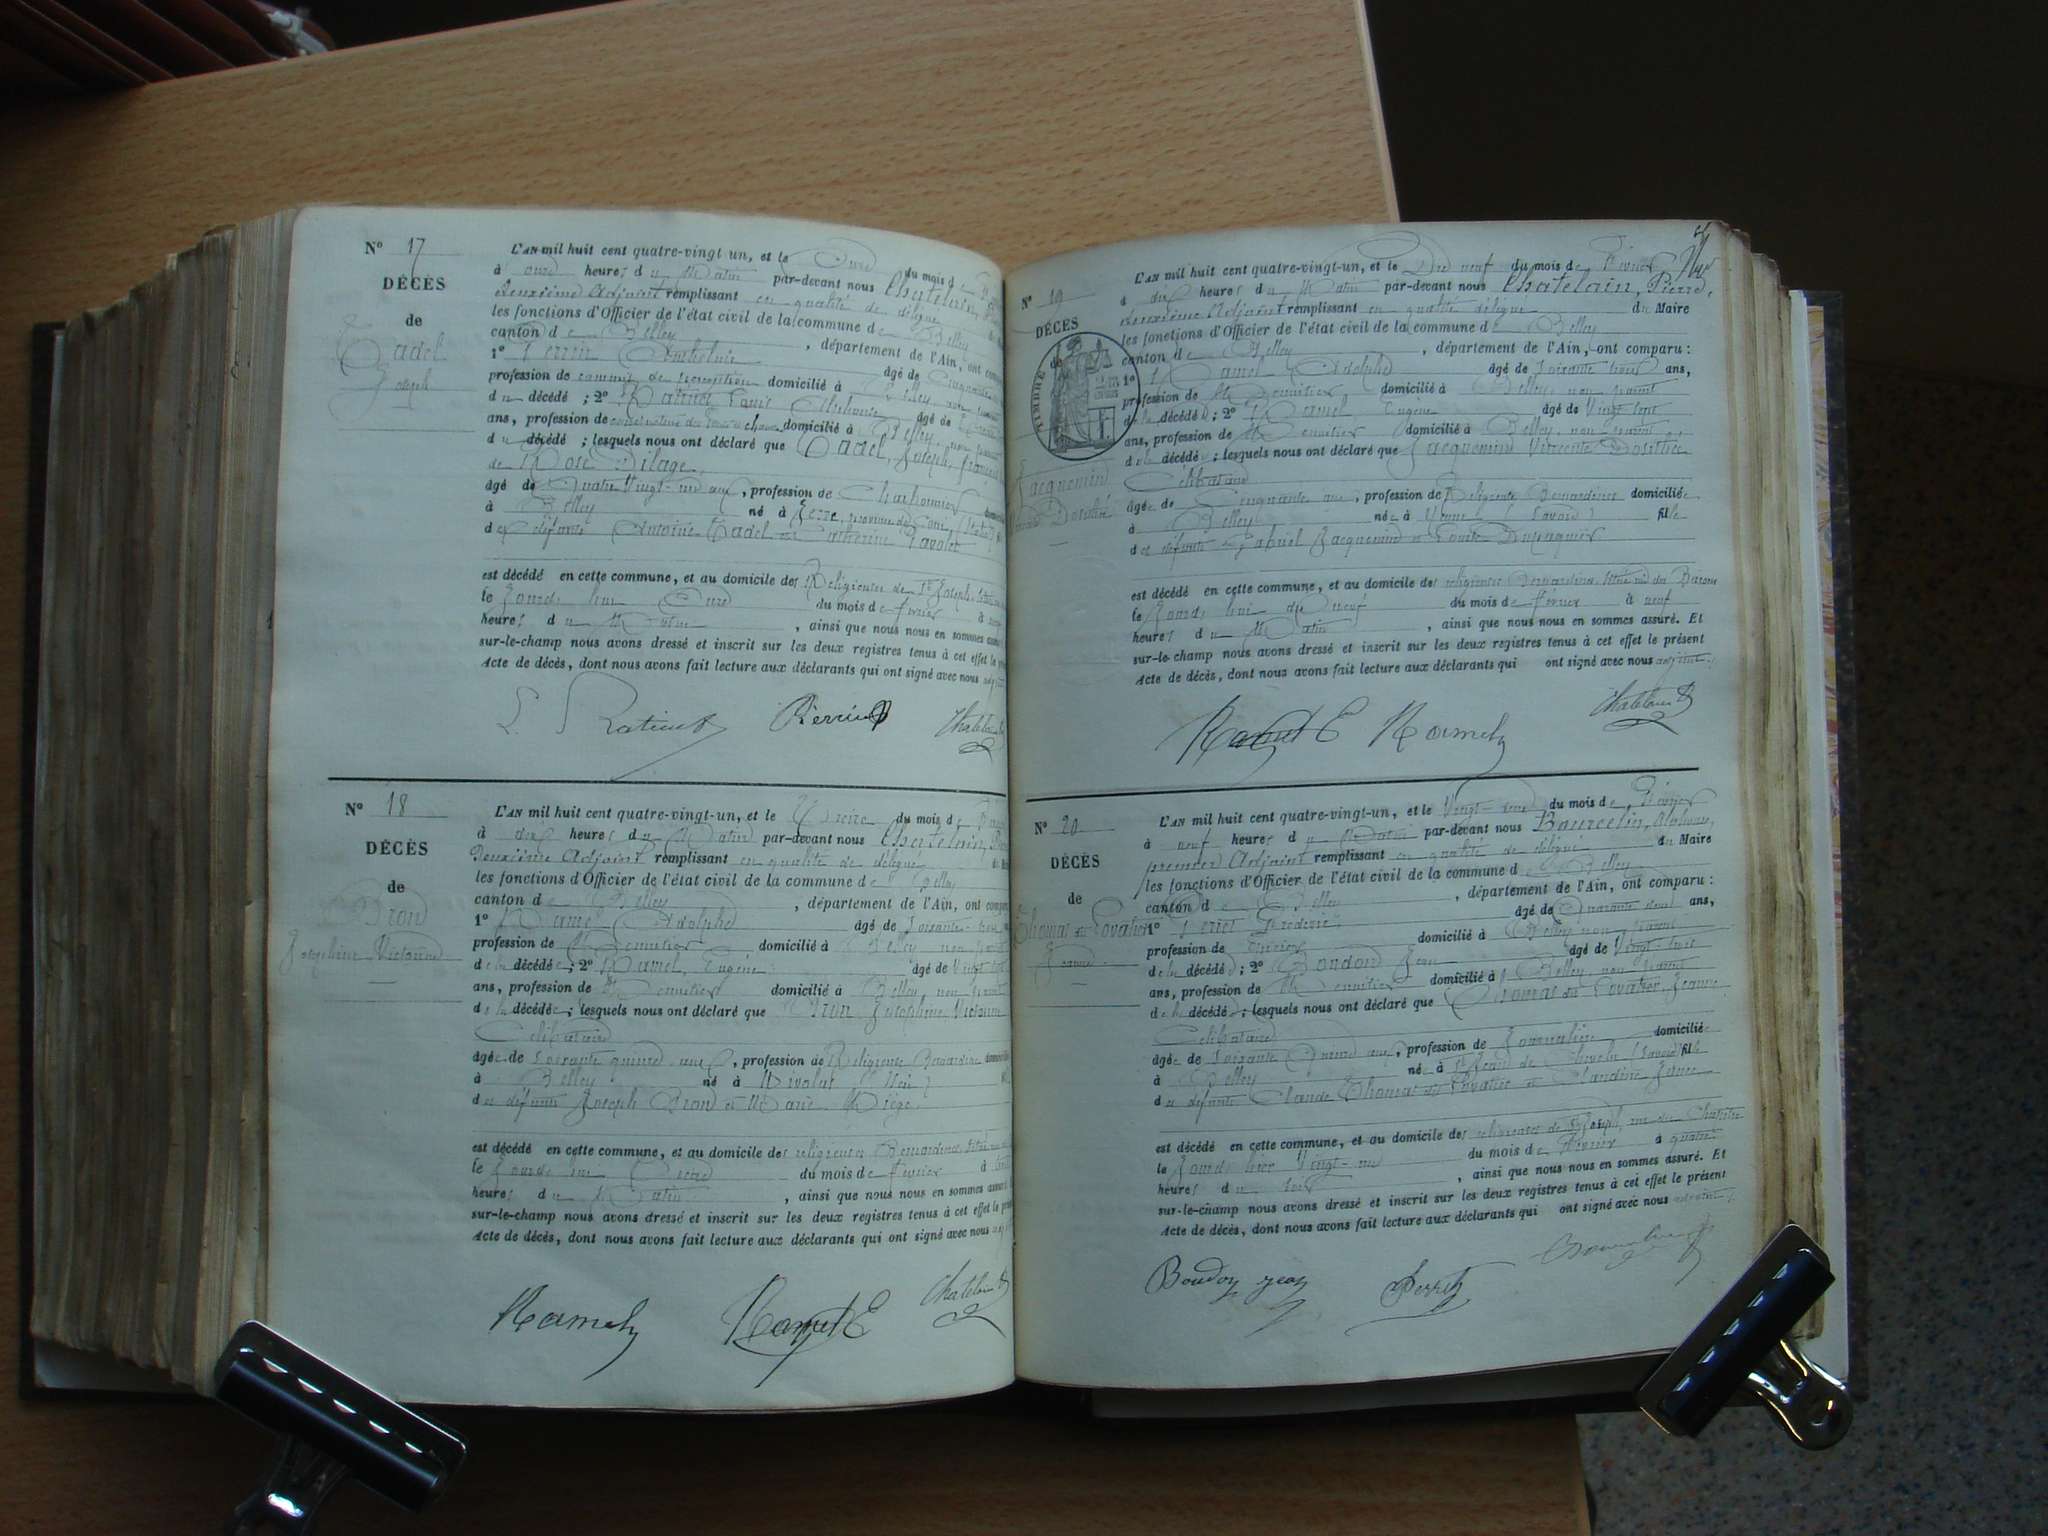 N° 17
DÉCÈS
de
Cadel
Joseph
L'AN mil huit cent quatre-vingt un, et le Onze du mois de
à onze heures du Matin par-devant nous Chatelain,
Deuxième Adjoint remplissant en qualité de délégué
les fonctions d'Officier de l'état civil de la commune de Belley
canton de Belley, département de l'Ain, ont
1° Perrin Anthelme âgé de Cinquante
profession de commis de perception domicilié à Belley, non
du décédé ; 2° Ratinet Louis Alphonse âgé de
ans, profession de domicilié à Belley, non parent
du décédé ; lesquels nous ont déclaré que Cadel, Joseph, François
de Rose Dilage,
âgé de Quatre Vingt-un ans, profession de Charbonnier
à Belley né à province de Coni (Italie)
des défunts Antoine Cadel et Catherine
est décédé en cette commune, et au domicile des Religieuses de St Joseph,
le Jourd'hui Onze du mois de février à
heures du Matin, ainsi que nous nous en sommes
sur-le-champ nous avons dressé et inscrit sur les deux registres tenus à cet effet le
Acte de décès, dont nous avons fait lecture aux déclarants qui ont signé avec nous
L. Ratinet Perrin Chatelain
N° 18
DÉCÈS
de
Dron
Joséphine Victorine
L'AN mil huit cent quatre-vingt-un, et le Treize du mois de
à dix heures du Matin par-devant nous Chatelain,
Deuxième Adjoint remplissant en qualité de délégué
les fonctions d'Officier de l'état civil de la commune de Belley
canton de Belley, département de l'Ain, ont
1° Ramel Adolphe âgé de Soixante-trois
profession de Menuisier domicilié à Belley non parent
de la décédée ; 2° Ramel, Eugène âgé de Vingt sept
ans, profession de Menuisier domicilié à Belley, non parent
de la décédée ; lesquels nous ont déclaré que Dron Joséphine Victorine
Célibataire
âgée de Soixante quinze ans, profession de Religieuse Bernardine
à Belley né à (Ain)
des défunts Joseph Dron et Marie
est décédé en cette commune, et au domicile des religieuses Bernardines,
le Jourd'hui Treize du mois de février à
heures du Matin, ainsi que nous nous en sommes
sur-le-champ nous avons dressé et inscrit sur les deux registres tenus à cet effet le
Acte de décès, dont nous avons fait lecture aux déclarants qui ont signé avec nous
Ramel Ramel E Chatelain
N° 19
DÉCÈS
de
TIMBRE
Jacquemin
Dosithée
L'AN mil huit cent quatre-vingt-un, et le Dix neuf du mois de Février
à dix heures du Matin par-devant nous Chatelain, Pierre,
deuxième Adjoint remplissant en qualité délégué du Maire
les fonctions d'Officier de l'état civil de la commune de Belley
canton de Belley, département de l'Ain, ont comparu :
1° Ramel Adolphe âgé de Soixante trois ans,
profession de Menuisier domicilié à Belley non parent
de la décédée ; 2° Ramel Eugène âgé de Vingt sept
ans, profession de Menuisier domicilié à Belley, non parent,
de la décédée ; lesquels nous ont déclaré que Jacquemin Dosithée
Célibataire
âgée de Cinquante ans, profession de Religieuse Bernardines domiciliée
à Belley née à Yenne (Savoie) fille
des défunts Gabriel Jacquemin et Louise
est décédé en cette commune, et au domicile des religieuses Bernardines, située rue des Barons
le Jourd'hui dix neuf du mois de février à neuf
heures du Matin, ainsi que nous nous en sommes assuré. Et
sur-le-champ nous avons dressé et inscrit sur les deux registres tenus à cet effet le présent
Acte de décès, dont nous avons fait lecture aux déclarants qui ont signé avec nous adjoint.
Ramel E Ramel Chatelain
N° 20
DÉCÈS
de
Thomas dit Lovatier
Jeanne
L'AN mil huit cent quatre-vingt-un, et le Vingt-deux du mois de Février
à neuf heures du Matin par-devant nous Bourcelin,
premier Adjoint remplissant en qualité de délégué du Maire
les fonctions d'Officier de l'état civil de la commune de Belley
canton de Belley, département de l'Ain, ont comparu :
1° Perret Frédéric âgé de Quarante deux ans,
profession de domicilié à Belley non parent
de la décédée ; 2° Boudon Jean âgé de Vingt-huit
ans, profession de Menuisier domicilié à Belley, non parent
de la décédée ; lesquels nous ont déclaré que Thomas dit Lovatier, Jeanne
Célibataire
âgée de Soixante Quinze ans, profession de Journalière domiciliée
à Belley née à St Jean de (Savoie) fille
des défunts Claude Thomas dit Lovatier et Claudine
est décédé en cette commune, et au domicile des religieuses de St Joseph, rue du Chapitre
le Jour d'hier Vingt-un du mois de Février à quatre
heures du soir, ainsi que nous nous en sommes assuré. Et
sur-le-champ nous avons dressé et inscrit sur les deux registres tenus à cet effet le présent
Acte de décès, dont nous avons fait lecture aux déclarants qui ont signé avec nous adjoint.
Boudon jean Perret Bourcelin